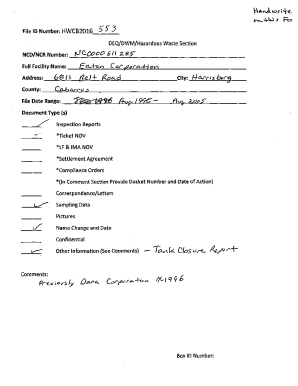 Handwrite
File ID Number: HWCB2016 553
DEQ/DWM/Hazardous Waste Section
NCD/NCR Number: NC0000611285
Full Facility Name: Eaton Corporation
Address: 6811 Belt Road City: Harrisburg
County: Cabarrus
File Date Range: Aug 1995 - Aug 2005
Document Type (s)
Inspection Reports
*Ticket NOV
*LF & IMA NOV
*Settlement Agreement
*Compliance Orders
*(In Comment Section Provide Docket Number and Date of Action)
Correspondence/Letters
Sampling Data
Pictures
Name Change and Date
Confidential
Other Information (See Comments) - Tank Closure Report
Comments:
Previously Dana Corporation 1996
Box ID Number: